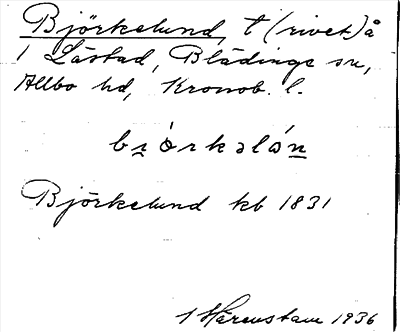 Björkelund, t (rivet) å
1 Låstad, Blädinge sn,
Allbo hd, Kronob. l.
bi̯ò̱rkəlón̲
Björkelund kb 1831
1 Härenstam 1936